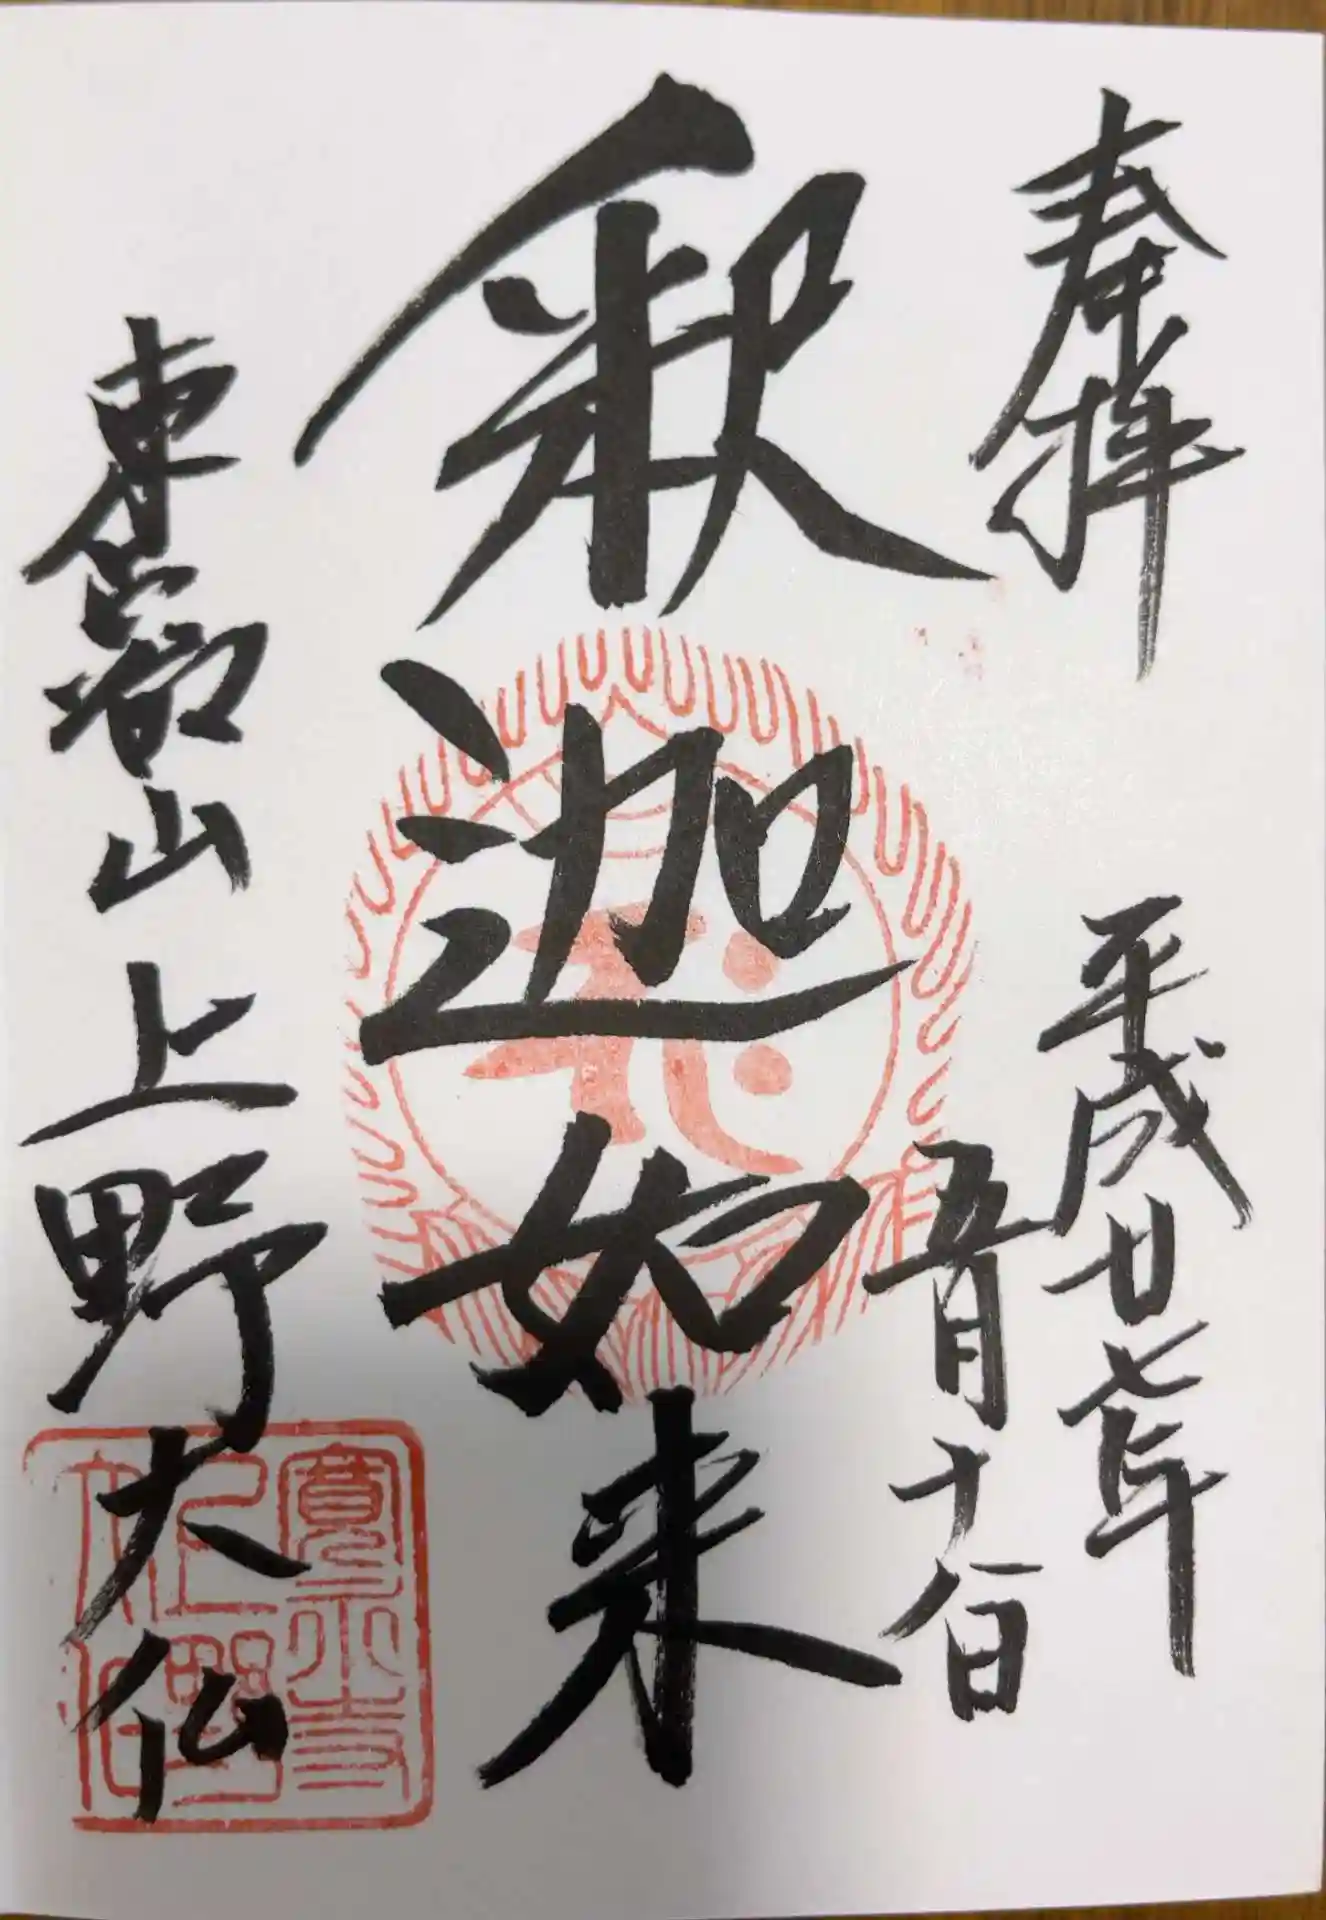 奉拝
平成廿七年
五月十八日
釈迦如来
東叡山
上野大仏
寛永寺
上野大仏